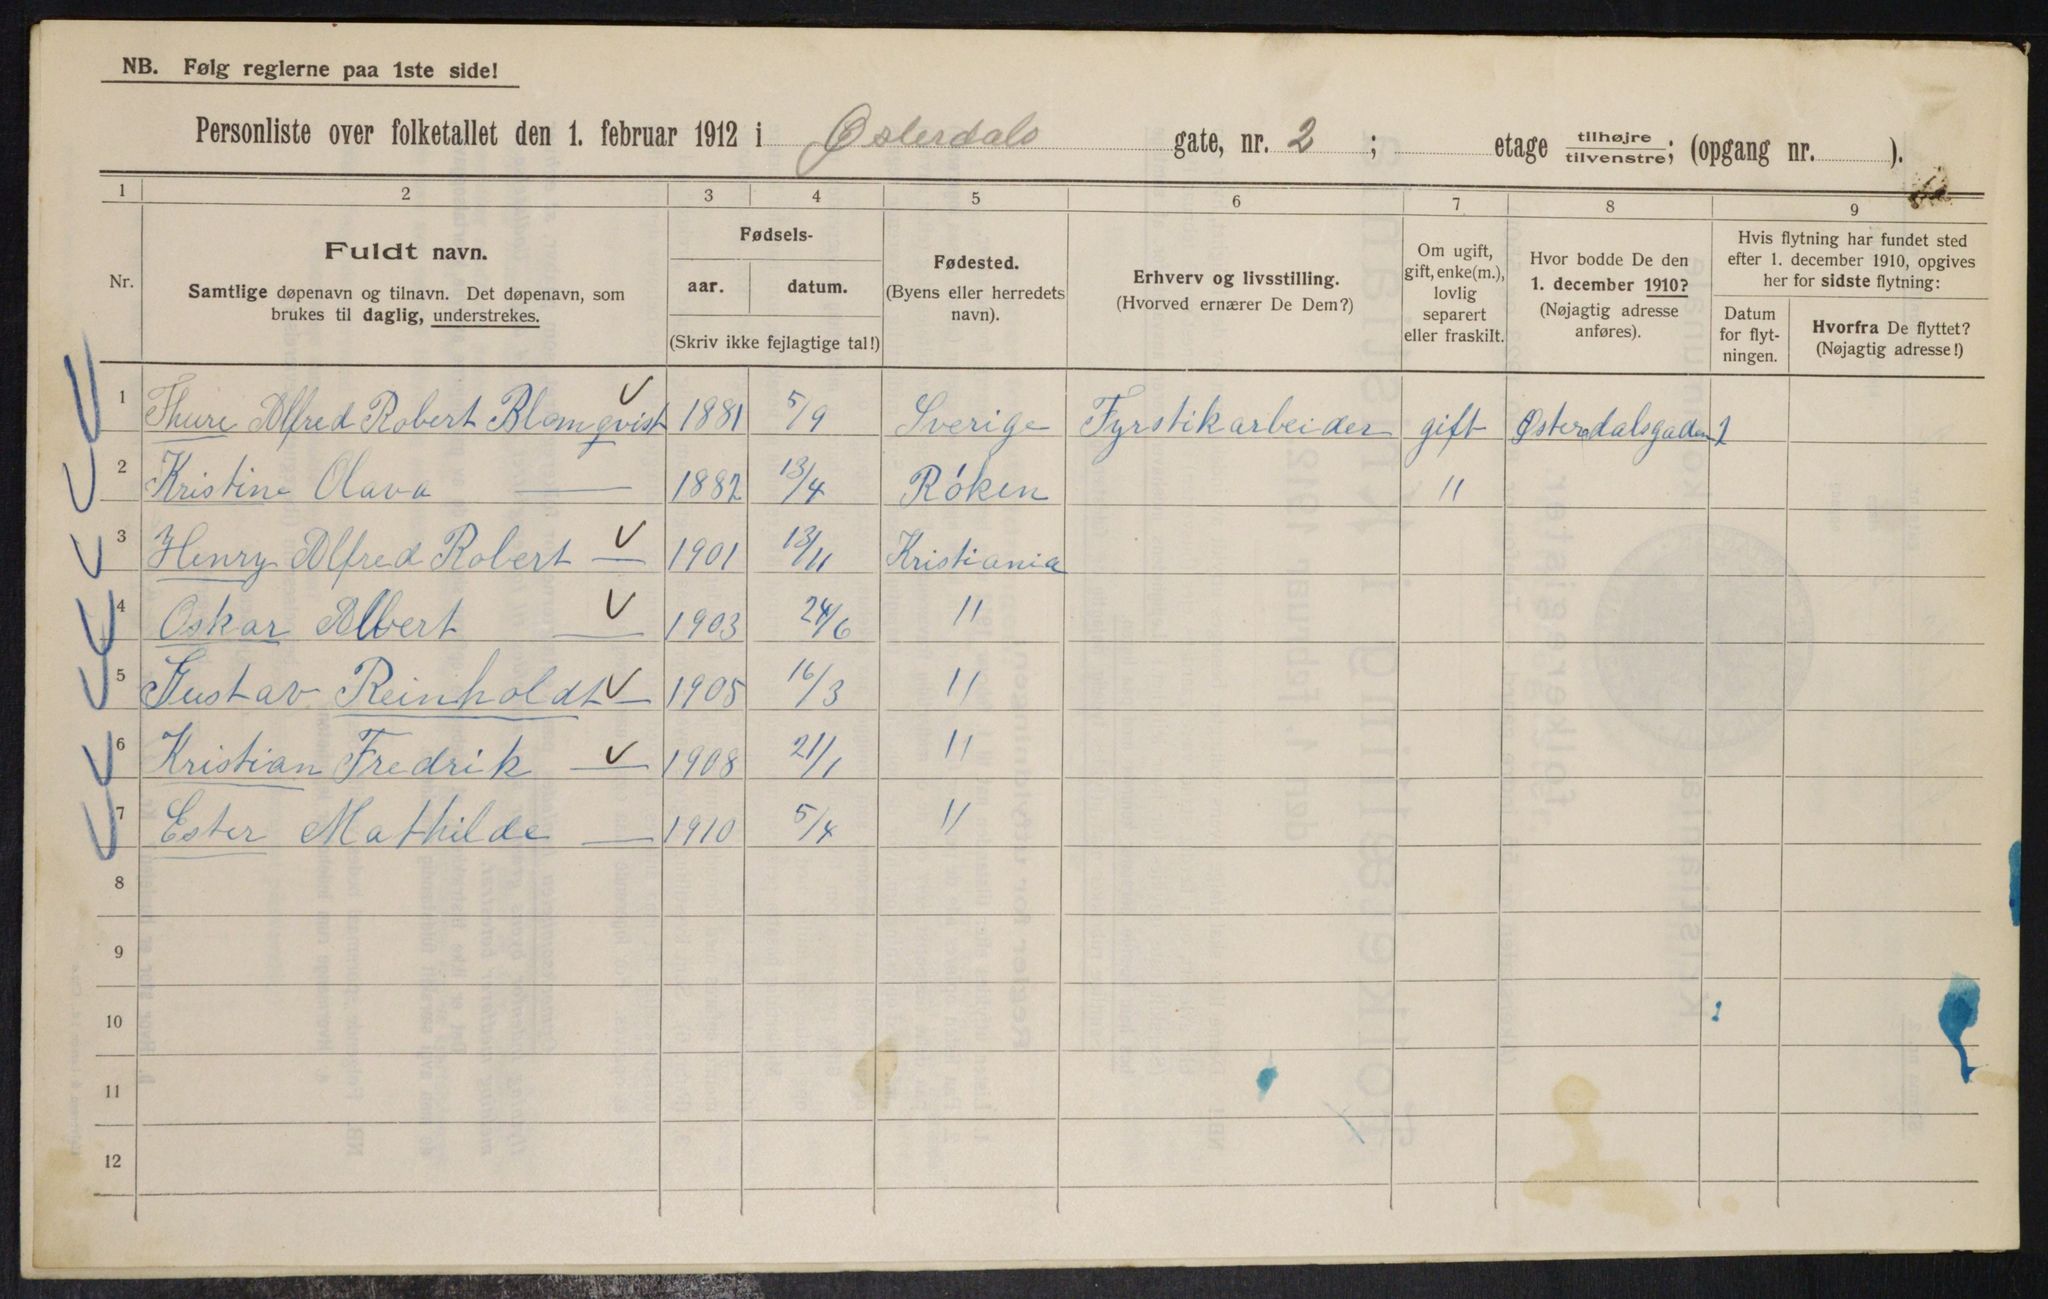 NB. Følg reglerne paa 1ste side!
Personliste over folketallet den 1. februar 1912 i Østerdals gate, nr. 2 ; etage tilhøjre tilvenstre; (opgang nr. ).
1 2 3 4 5 6 7 8 9
Nr.
Fuldt navn.
Samtlige døpenavn og tilnavn. Det døpenavn, som
brukes til daglig, understrekes.
Fødsels-
aar. datum.
(Skriv ikke fejlagtige tal!)
Fødested.
(Byens eller herredets
navn).
Erhverv og livsstilling.
(Hvorved ernærer De Dem?)
Om ugift,
gift, enke(m.),
lovlig
separert
eller fraskilt.
Hvor bodde De den
1. december 1910?
(Nøjagtig adresse
anføres).
Hvis flytning har fundet sted
efter 1. december 1910, opgives
her for sidste flytning:
Datum
for flyt-
ningen.
Hvorfra De flyttet?
(Nøjagtig adresse!)
1 Thure Alfred Robert Blomqvist 1881 5/9 Sverige Fyrstikarbeider gift Østerdalsgaden 2
2 Kristine Olava — 1882 13/4 Røken 11
3 Henry Alfred Robert — 1901 13/11 Kristiania
4 Oskar Albert — 1903 24/6 11
5 Gustav Reinholdt — 1905 16/3 11
6 Kristian Fredrik — 1908 21/1 11
7 Ester Mathilde — 1910 5/4 11
8
9
10
11
12